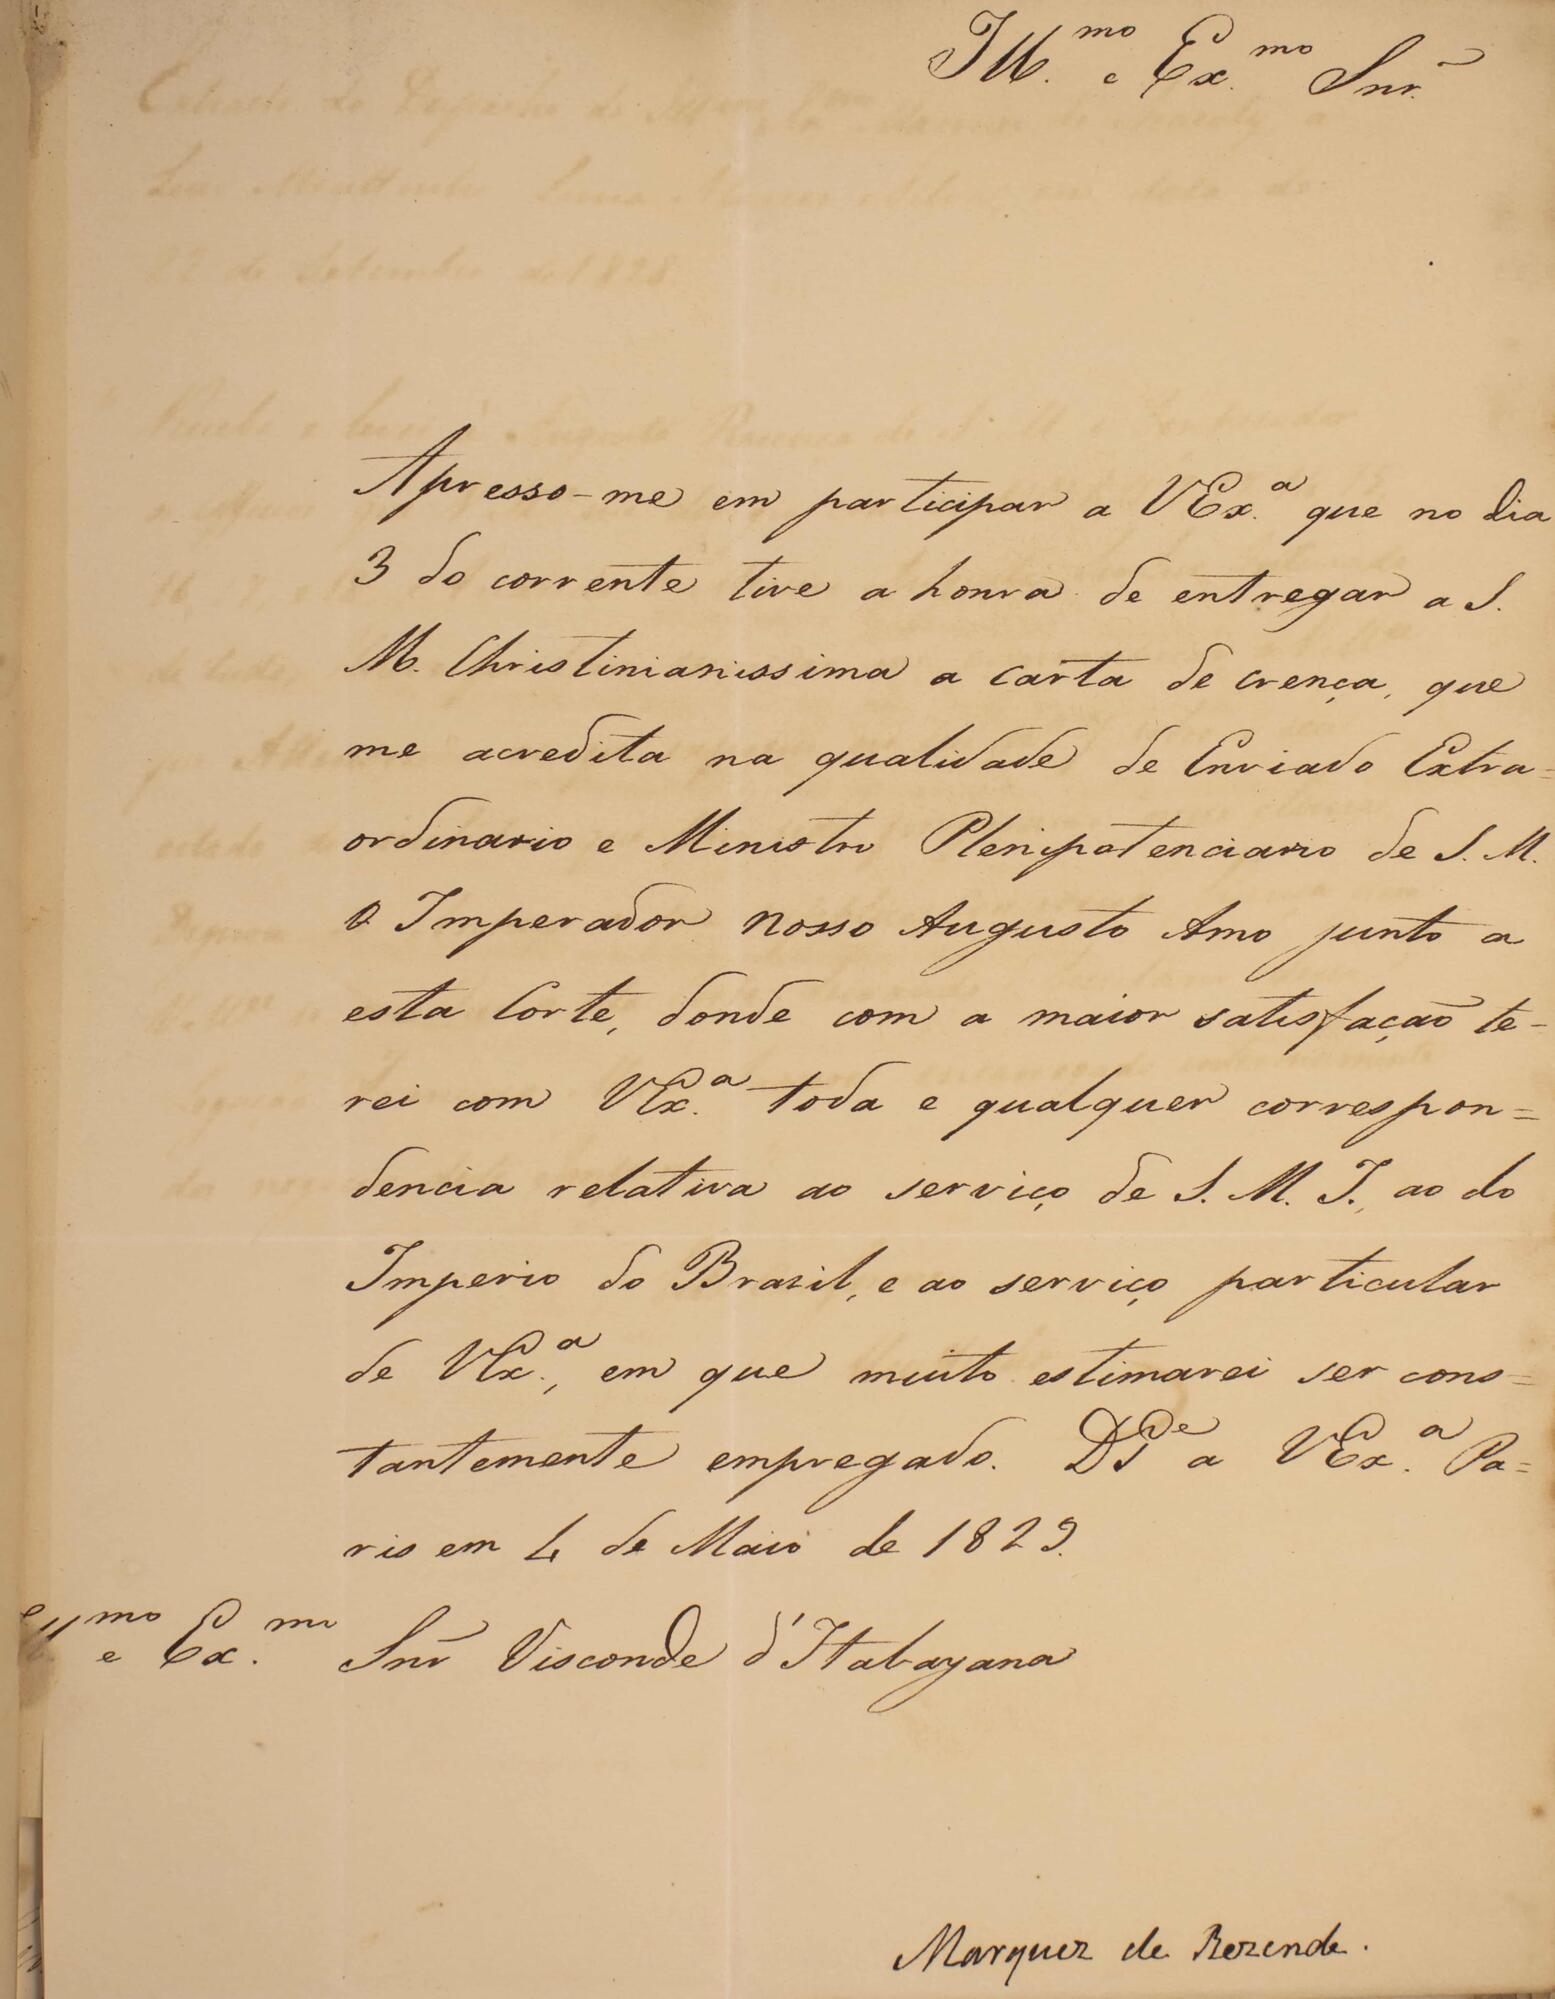 Ill.mo e Ex.mo Snr.
Apresso-me em participar a VEx.a que no dia
3 do corrente tive a honra de entregar a S.
M. Christinianissima a carta de crença, que
me acredita na qualidade de Enviado Extra=
ordinario e Ministro Plenipotenciario de S. M.
O Imperador nosso Augusto Amo junto a
esta Corte, donde com a maior satisfação te-
rei com VEx.a toda e qualquer correspon=
dencia relativa ao serviço de S. M. I., ao do
Imperio do Brasil, e ao serviço particular
de VEx.a, em que muito estimarei ser cons=
tantemente empregado. DGe a VEx.a Pa=
ris em 4 de Maio de 1829.
Ill.mo e Ex.mo Snr Visconde d'Itabayana
Marquez de Rezende.